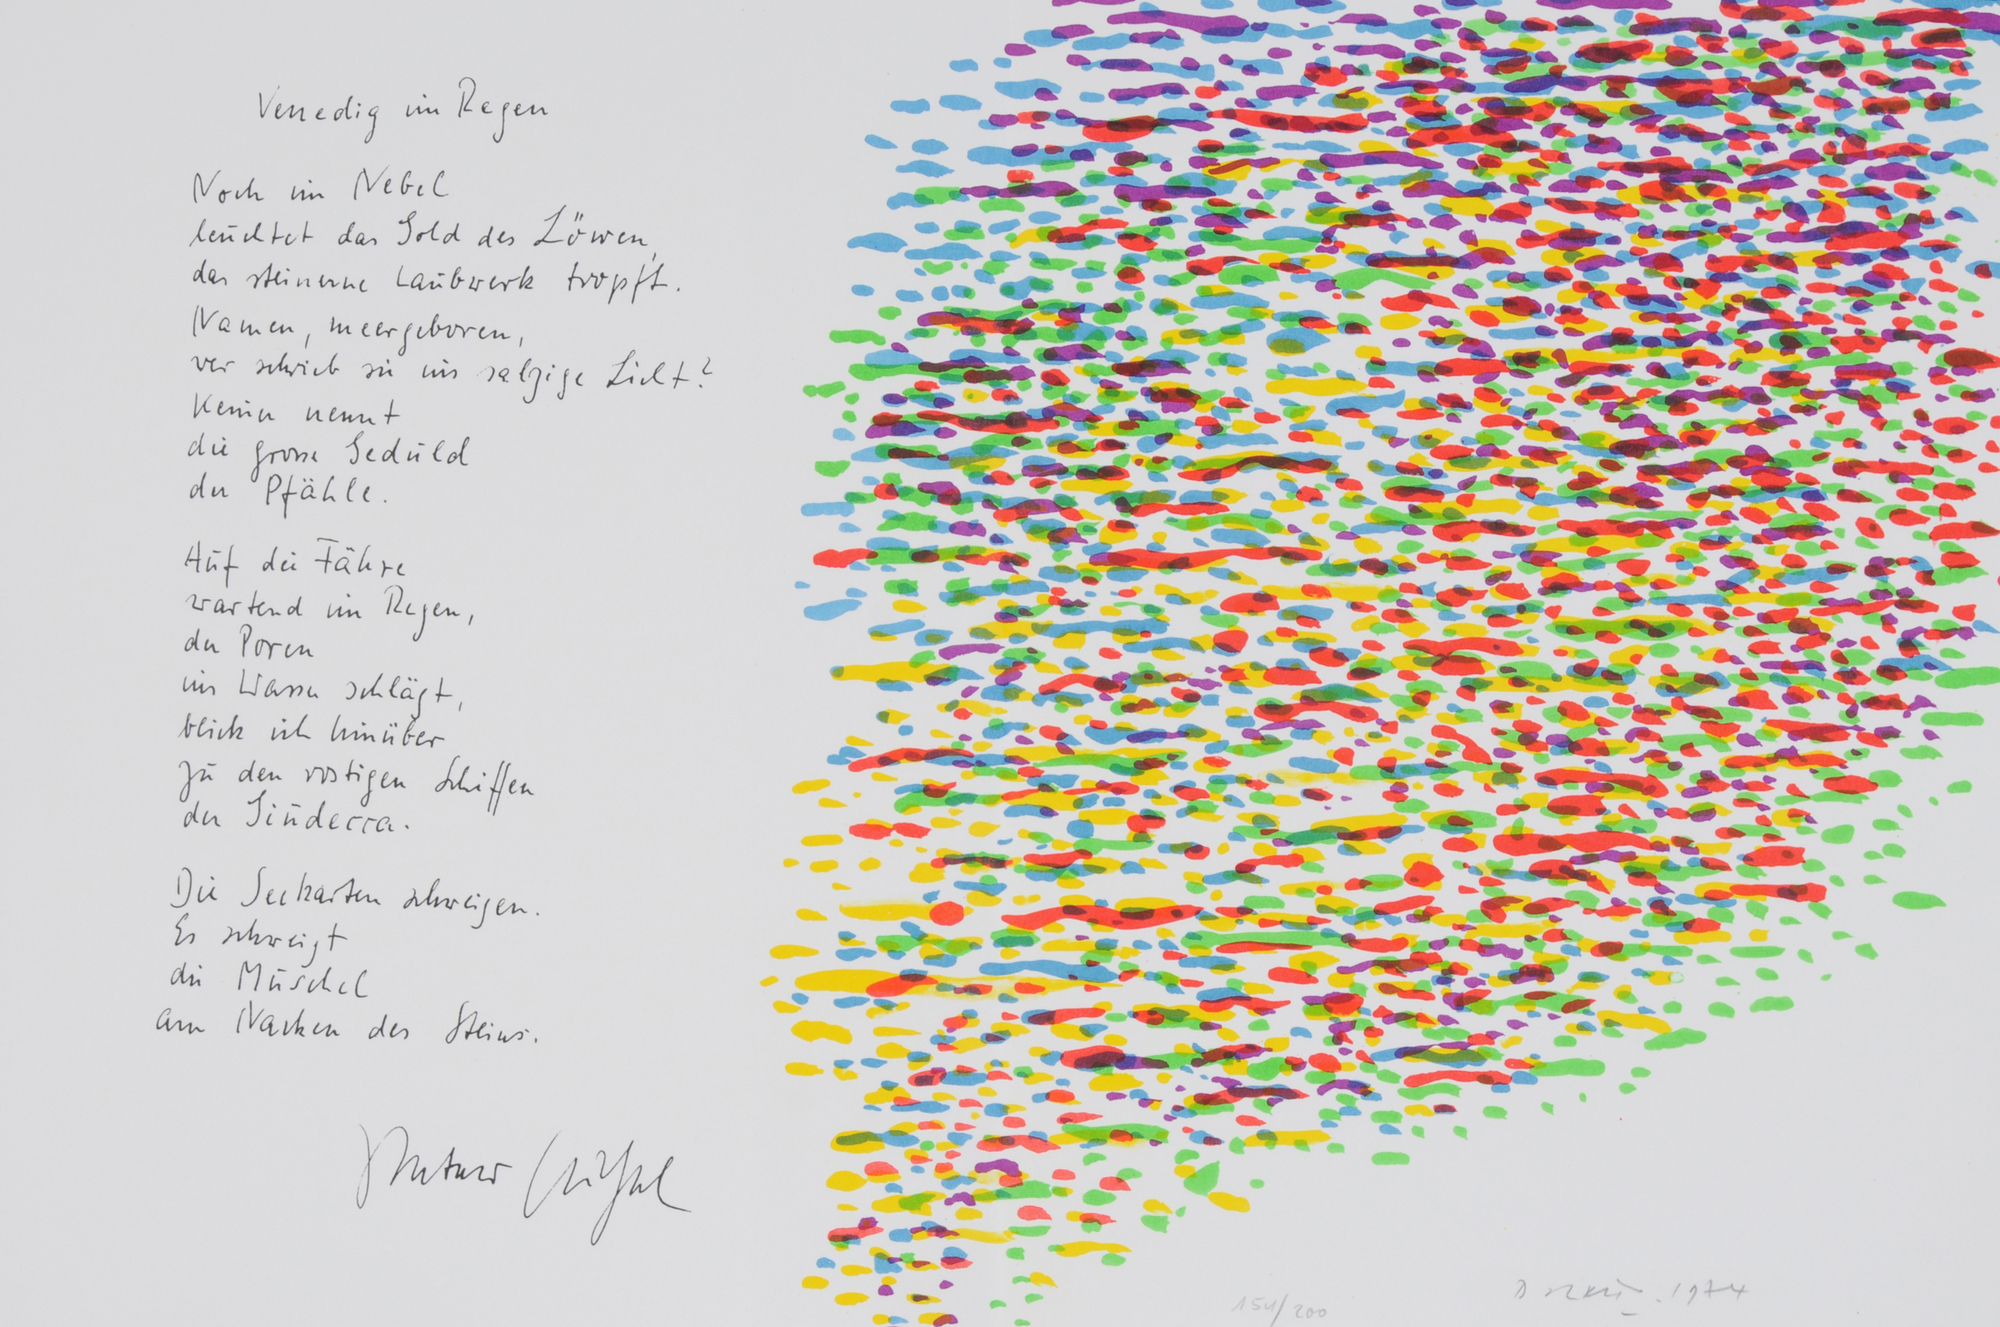 Venedig im Regen
Noch im Nebel
leuchtet das Gold des Löwen,
das steinerne Laubwerk tropft.
Namen, meergeboren,
wer schrieb sie ins salzige Licht?
Keiner nennt
die grosse Geduld
der Pfähle.
Auf die Fähre
wartend im Regen,
der Poren
ins Wasser schlägt,
blick ich hinüber
zu den rostigen Schiffen
der Giudecca.
Die Seekarten schweigen.
Es schweigt
die Muschel
am Nacken des Steins.
/200
1974